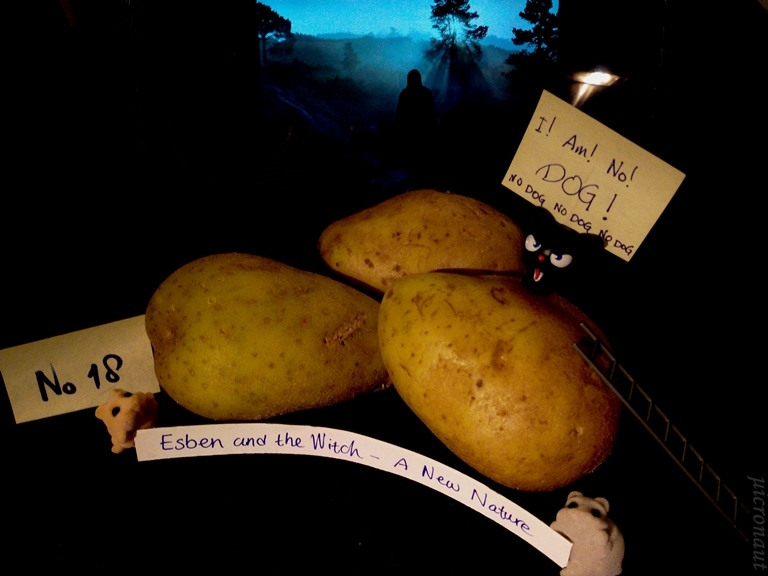 I! Am! No!
DOG!
NO DOG NO DOG NO DOG
No 18
Esben and the Witch – A New Nature
µicronaut